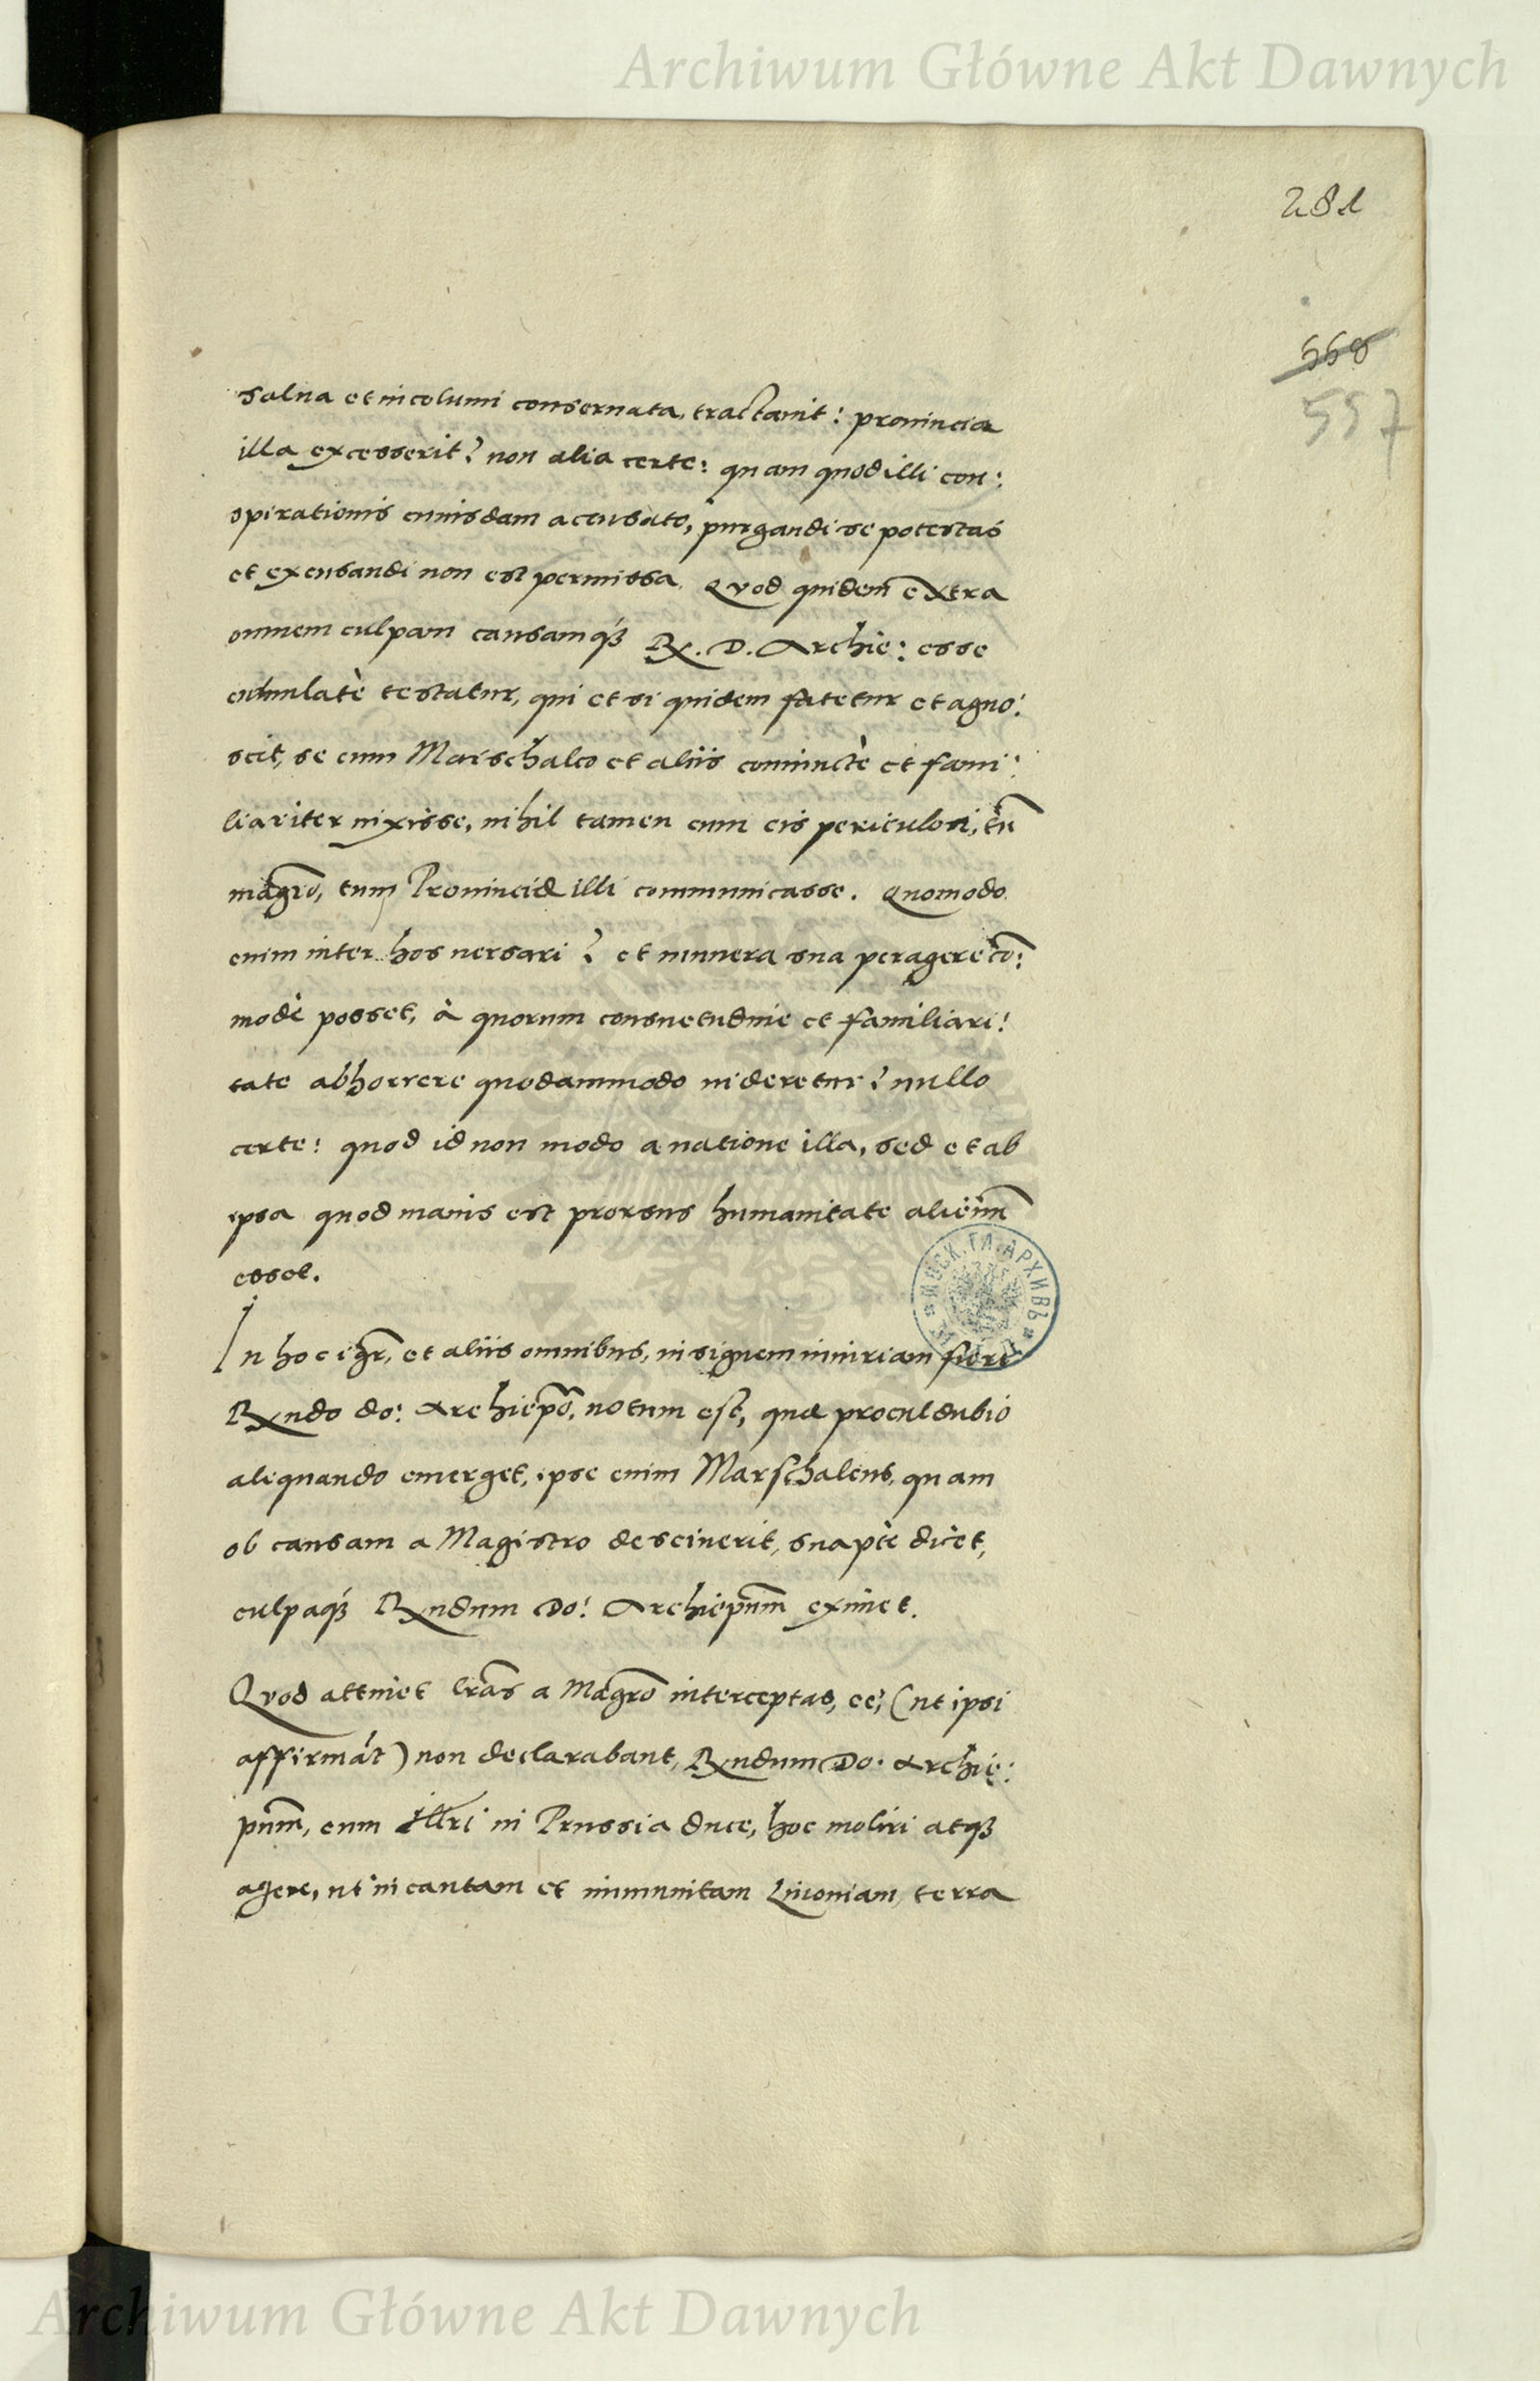 Archiwum Główne Akt Dawnych
281
558
557
salua et incolumi conseruata, tractauit: prouincia
illa excesserit? non alia certe: quam quod illi con:
spirationis cuiusdam accusato, purgandi se potestas
et excusandi non est permissa. Quod quidem extra
omnem culpam causamq3 Rx. D. Archie: esse
cumulatè testatur, qui etsi quidem fatetur et agno:
scit, se cum Marschalco et aliis coniunctè et fami:
liariter uixisse, nihil tamen cum eis periculosi, tũ
magr̃o, tum Prouinciæ illi communicasse. Quomodo
enim inter hos uersari? et munera sua peragere cõ:
modè posset, à quorum consuetudine et familiari:
tate abhorrere quodammodo uideretur? nullo
certe: quod id non modo a natione illa, sed et ab
ipsa quod maius est prorsus humanitate alienũ
esset.
In hoc igr̃, et aliis omnibus, insignem iniuriam fieri
Rxndo do: Archiepõ, notum est, quæ proculdubio
aliquando emerget, ipse enim Marschalcus, quam
ob causam a Magistro desciuerit, suapte dicet,
culpaq3 Rxndum Do: Archiepũm eximet.
Quod attinet lr̃as a Magr̃o interceptas, eę, (ut ipsi
affirmãt) non declarabant, Rxndum Do. Archie:
pũm, cum Illri in Prussia duce, hoc moliri atq3
agere, ut incautam et inmunitam Liuoniam, terra
МОСК. ГЛ. АРХИВЪ
Archiwum Główne Akt Dawnych